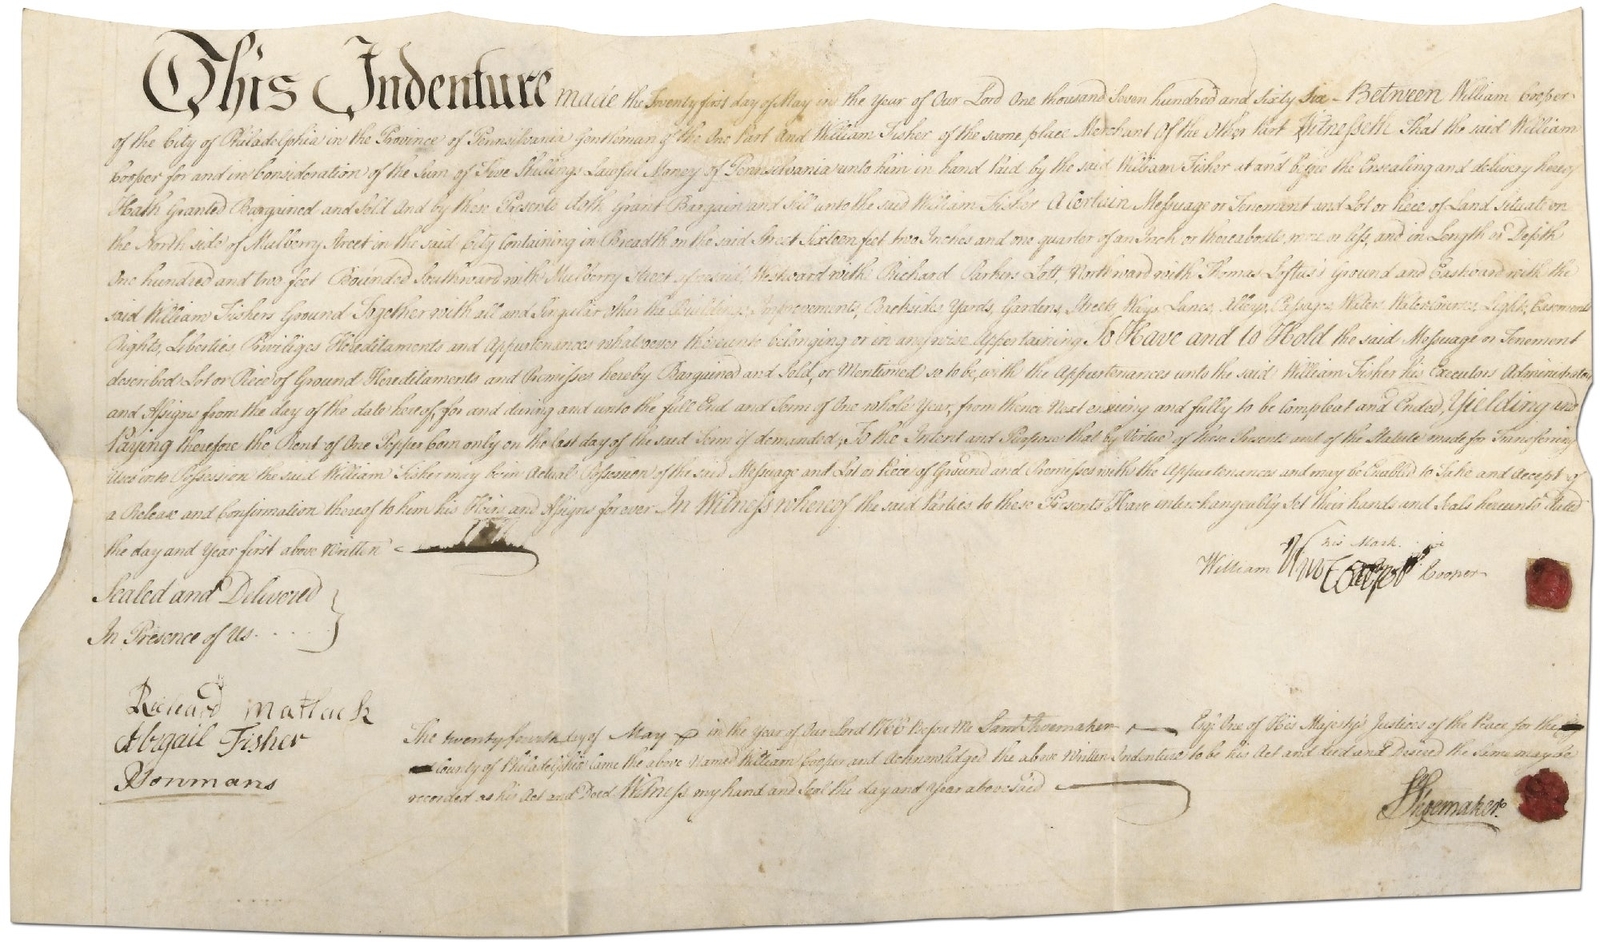 This Indenture made the Twenty first day of May in the Year of Our Lord One thousand Seven hundred and Sixty Six - Between William Cooper
of the City of Philadelphia in the Province of Pennsilvania Gentleman of the One Part And William Fisher of the same place Merchant Of the Other Part Witnesseth That the said William
Cooper for and in Consideration of the Sum of Five Shillings Lawful Money of Pennsilvania unto him in hand Paid by the said William Fisher at and before the Ensealing and delivery hereof
Hath Granted Bargained and Sold And by these Presents doth Grant Bargain and sell unto the said William Fisher A Certain Messuage or Tenement and Lot or Piece of Land Situate on
the North side of Mulberry Street in the said City Containing in Breadth on the said Street Sixteen feet two Inches and one quarter of an Inch or thereabouts more or less, and in Length or Depth
One hundred and two feet Bounded Southward with Mulberry Street aforesaid, Westward with Richard Parkers Lott, Northward with Thomas Loftus's Ground and Eastward with the
said William Fishers Ground Together with all and Singular other the Buildings Improvements, Backsides, Yards, Gardens, Streets, Ways, Lanes, Alleys, Passages, Waters, Watercourses, Lights, Easments
Rights, Liberties, Priviliges Hereditaments and Appurtenances whatsoever thereunto belonging or in any wise Appertaining To Have and to Hold the said Messuage or Tenement
described Lot or Piece of Ground Hereditaments and Premisses hereby Bargained and Sold, or Mentioned so to be, with the Appurtenances unto the said William Fisher his Executors Administrators
and Assigns from the day of the date hereof, for and during and unto the full End and Term of One whole Year, from thence Next ensuing and fully to be Compleat and Ended, Yielding and
Paying therefore the Rent of One Pepper Corn only on the last day of the said Term if demanded; To the Intent and Purpose that by Virtue of these Presents and of the Statute made for Transferring
Uses into Possession the said William Fisher may be in Actual Possession of the said Messuage and Lot or Piece of Ground and Premisses with the Appurtenances and may be Enabled to Take and Accept of
a Release and Confirmation thereof to him his Heirs and Assigns for ever. In Witness whereof the said Parties to these Presents Have interchangeably Set their hands and Seals hereunto Dated
the day and Year first above Written
his Mark
William Cooper
Sealed and Delivered
In Presence of Us . . . .
Richard Matlack
Abigail Fisher
The twenty fourth day of May in the Year of Our Lord 1766 Before Me Saml Shoemaker Esqr. One of His Majesty's Justices of the Peace for the
County of Philadelphia Came the above Named William Cooper and Acknowledged the above Written Indenture to be his Act and deed and Desired the Same may be
recorded as his Act and Deed Witness my hand and Seal the day and Year abovesaid
S Shoemaker